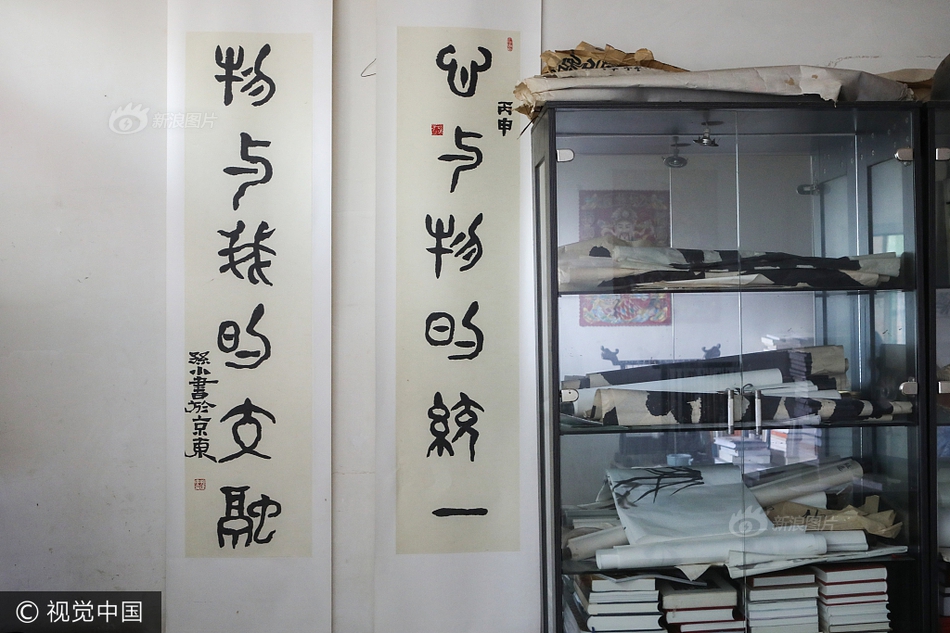 心与物的統一
丙申
物与我的交融
孫小書於京東
新浪图片
新浪图片
© 视觉中国